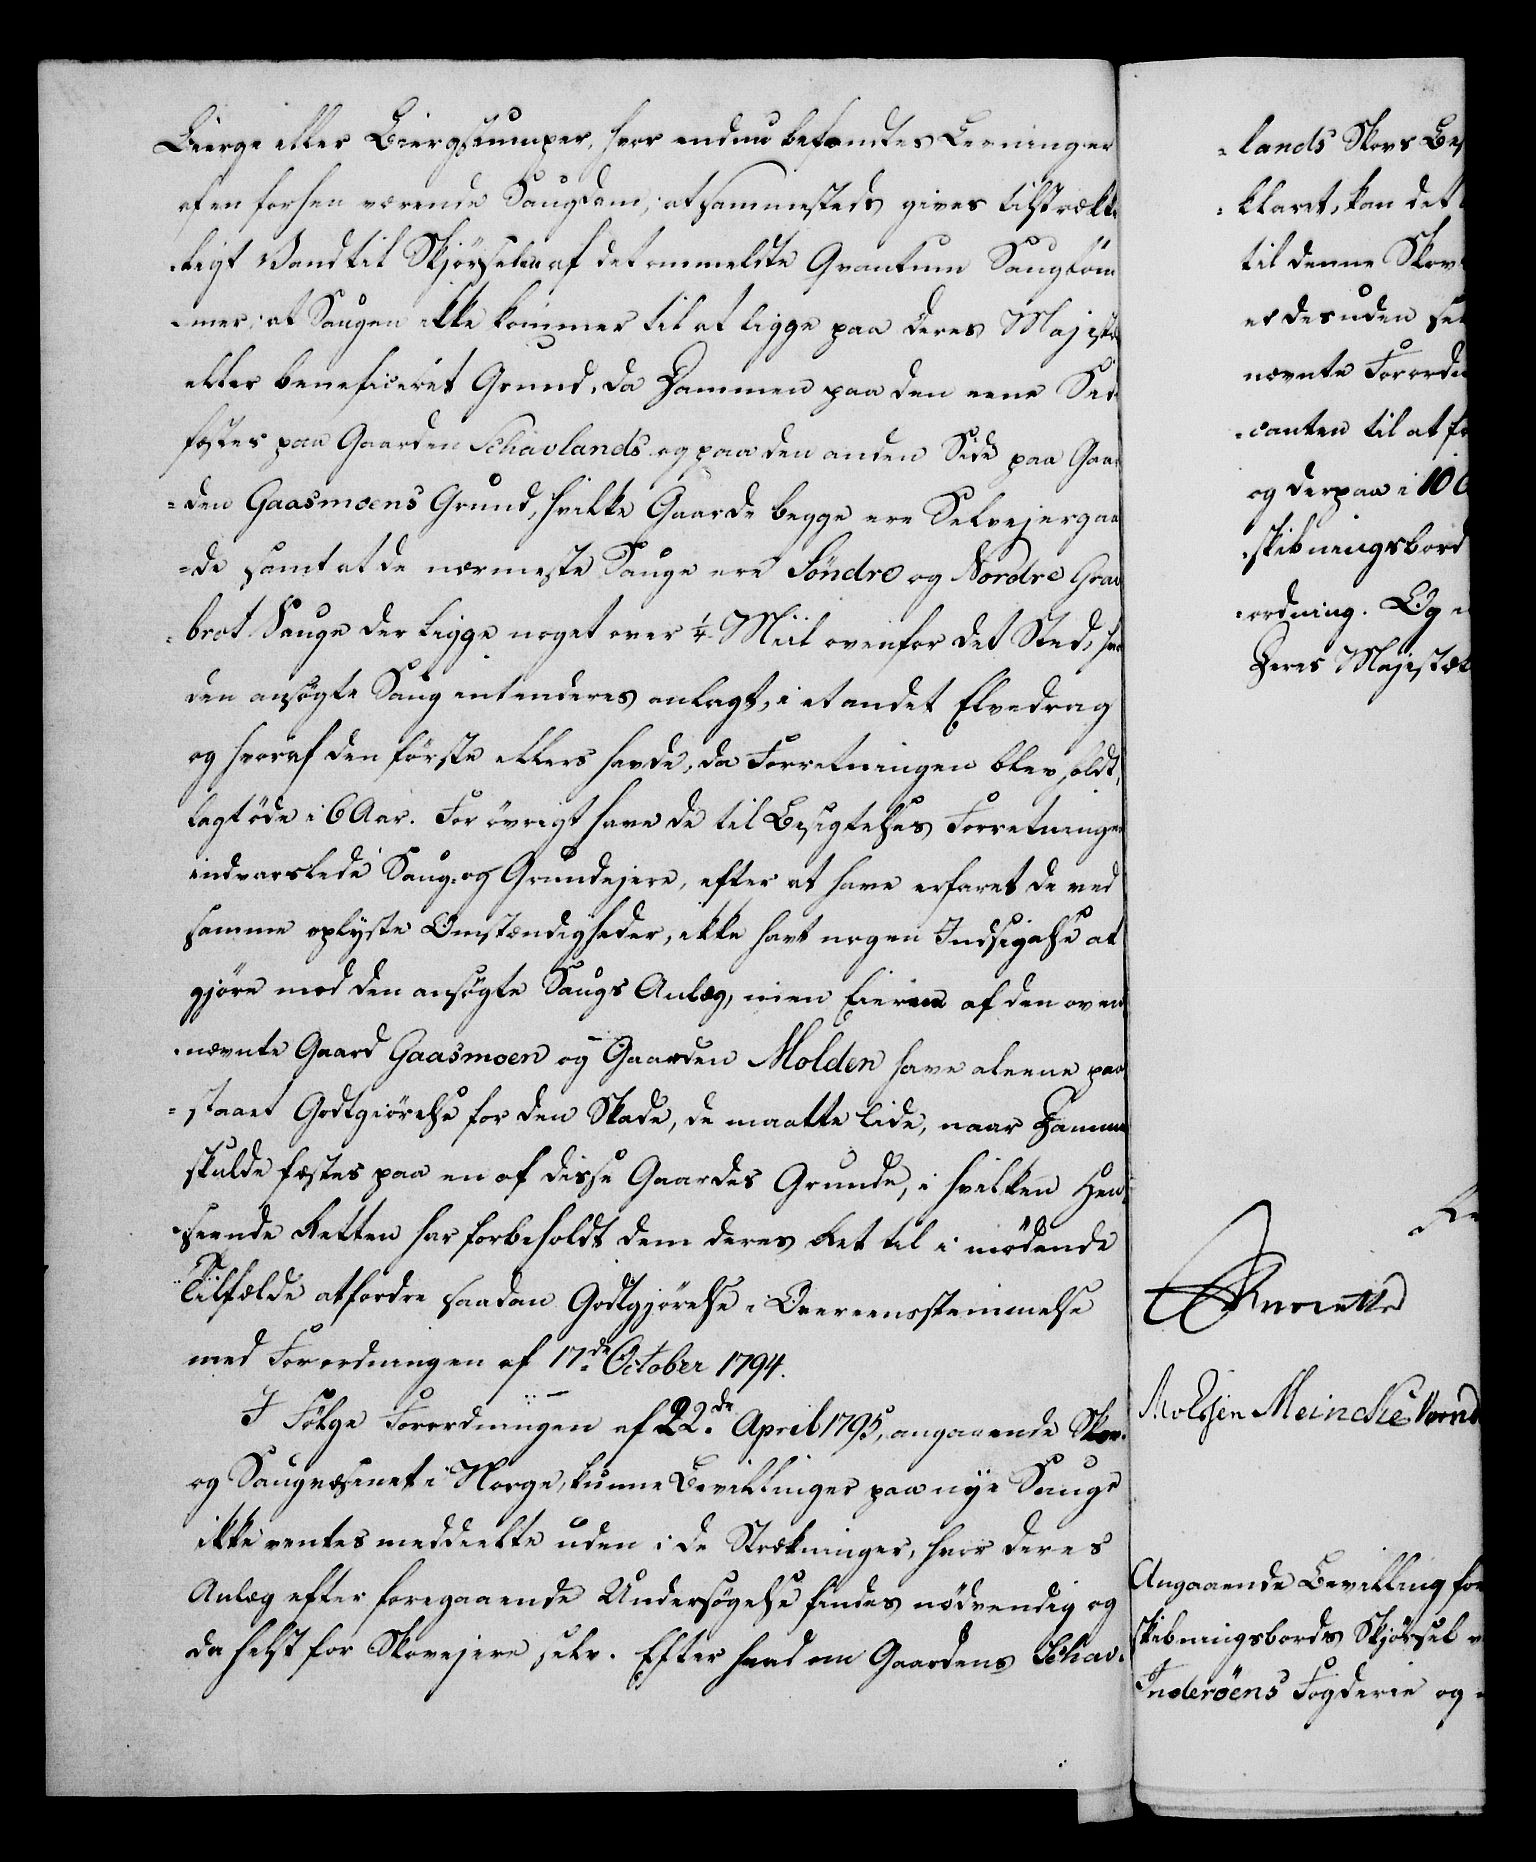 Bierge eller Biergstumper, hvor endnu befandtes Levninger
af en forhen værende Saugdam; at sammesteds gives tilstrække
-ligt Vand til Skjørselen af det ommeldte Qvantum Saugtøm
-mer; at Saugen ikke kommer til at ligge paa Deres Majestæts
eller beneficeret Grund, da Dammen paa den eene Side
fæstes paa Gaarden Schavlands og paa den anden Side paa Gaar
-den Gaasmoens Grund, hvilke Gaarde begge ere Selvejergaar
-de samt at de nærmeste Sauge ere Söndre og Nordre Gran
-brot Sauge der ligge noget over ¼ Miil ovenfor det Sted, hvor
den ansøgte Saug intenderes anlagt, i et andet Elvedrag
og hvoraf den første ellers havde, da Forretningen blev holdt,
lagt øde i 6 Aar. For øvrigt have de til Besigtelses Forretningen
indvarslede Saug- og Grundejere, efter at have erfaret de ved
samme oplyste Omstændigheder, ikke havt nogen Indsigelse at
gjøre mod den ansøgte Saugs Anlæg, men Eierne af den oven
-nævnte Gaard Gaasmoen og Gaarden Molden have aleene paa
-staaet Godtgiørelse for den Skade, de maatte lide, naar Dammen
skulde fæstes paa en af disse Gaardes Grunde, i hvilken Hen
-seende Retten har forbeholdt dem deres Ret til i mødende
Tilfælde at fordre saadan Godtgjørelse i Overeensstemmelse
med Forordningen af 17de October 1794.
I Følge Forordningen af 22de April 1795, angaaende Skov-
og Saugvæsenet i Norge, kunne Bevillinger paa nye Sauge
ikke ventes meddeelte uden i de Strækninger, hvor deres
Anlæg efter foregaaende Undersøgelse findes nødvendig og
da helst for Skovejere selv. Efter hvad om Gaardens Schav-
-lands Skovs Bes
-klaret, kan det
til denne Skov
er desuden
nævnte Forordn
-canten til at
og derpaa i 10
skibningsbord
-ordning. Og
Deres Majestæt
Moltsen Meincke
Angaaende Bevilling for
skibningsbords Skjørsel
Inderöens Fogderie og